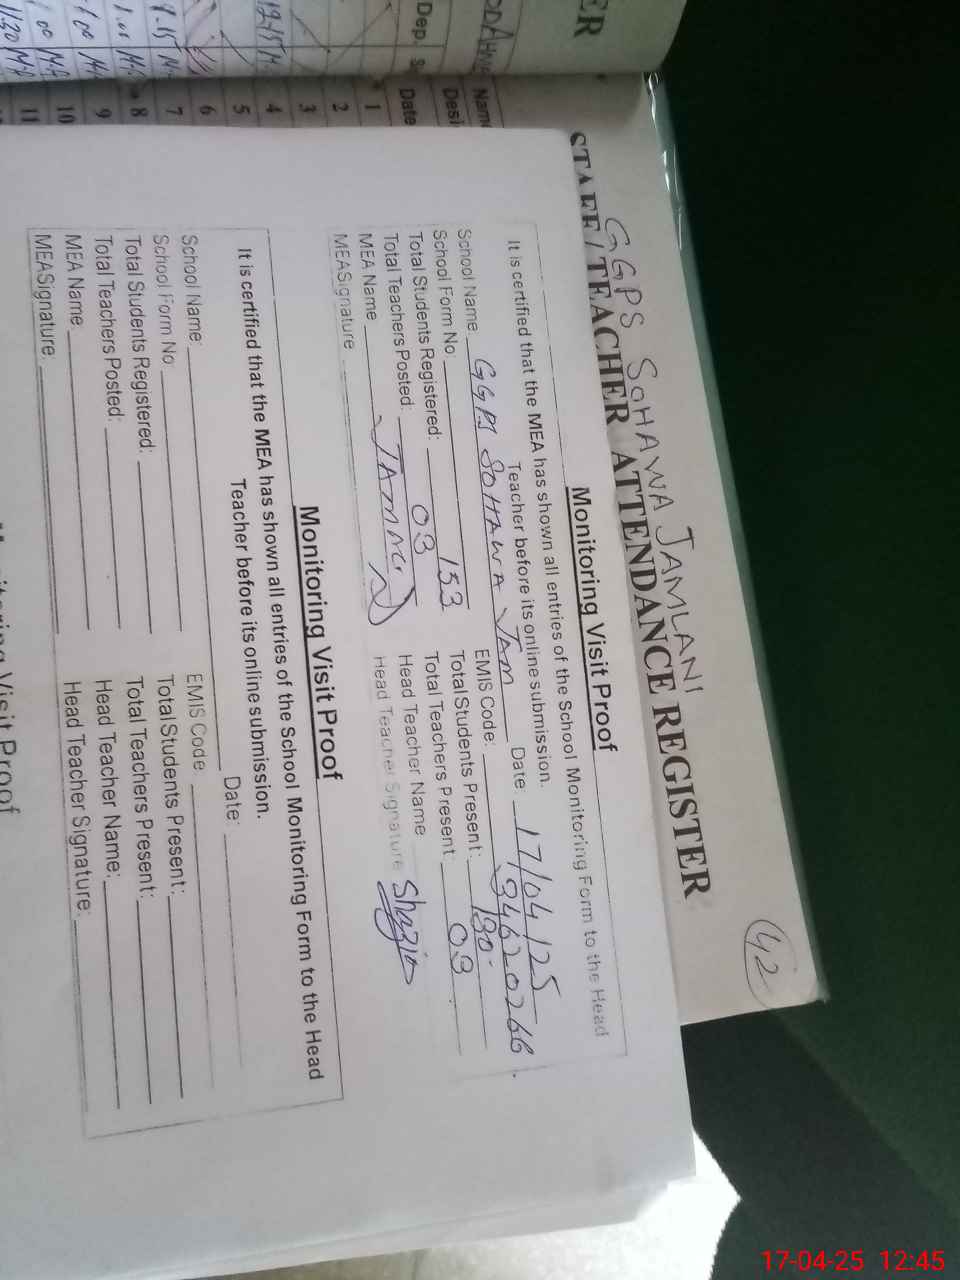 ER
DDAHM
Dep.
Name
Desi
Date
1
2
3
4
5
6
7
8
9
10
11
GGPS SOHAWA JAMLANI
STAFF / TEACHER ATTENDANCE REGISTER
42
Monitoring Visit Proof
It is certified that the MEA has shown all entries of the School Monitoring Form to the Head
Teacher before its online submission.
Date: 17/04/25
School Name: GGPS SOHAWA JAM
EMIS Code: 34620266
School Form No:
Total Students Registered: 153
Total Students Present: 130
Total Teachers Posted: 03
Total Teachers Present: 03
MEA Name
Head Teacher Name
MEASignature
Head Teacher Signature Shazia
Monitoring Visit Proof
It is certified that the MEA has shown all entries of the School Monitoring Form to the Head
Teacher before its online submission.
Date:
School Name:
EMIS Code
School Form No
Total Students Present:
Total Students Registered:
Total Teachers Present:
Total Teachers Posted:
Head Teacher Name:
MEA Name
Head Teacher Signature:
MEASignature:
Monitoring Visit Proof
17-04-25 12:45